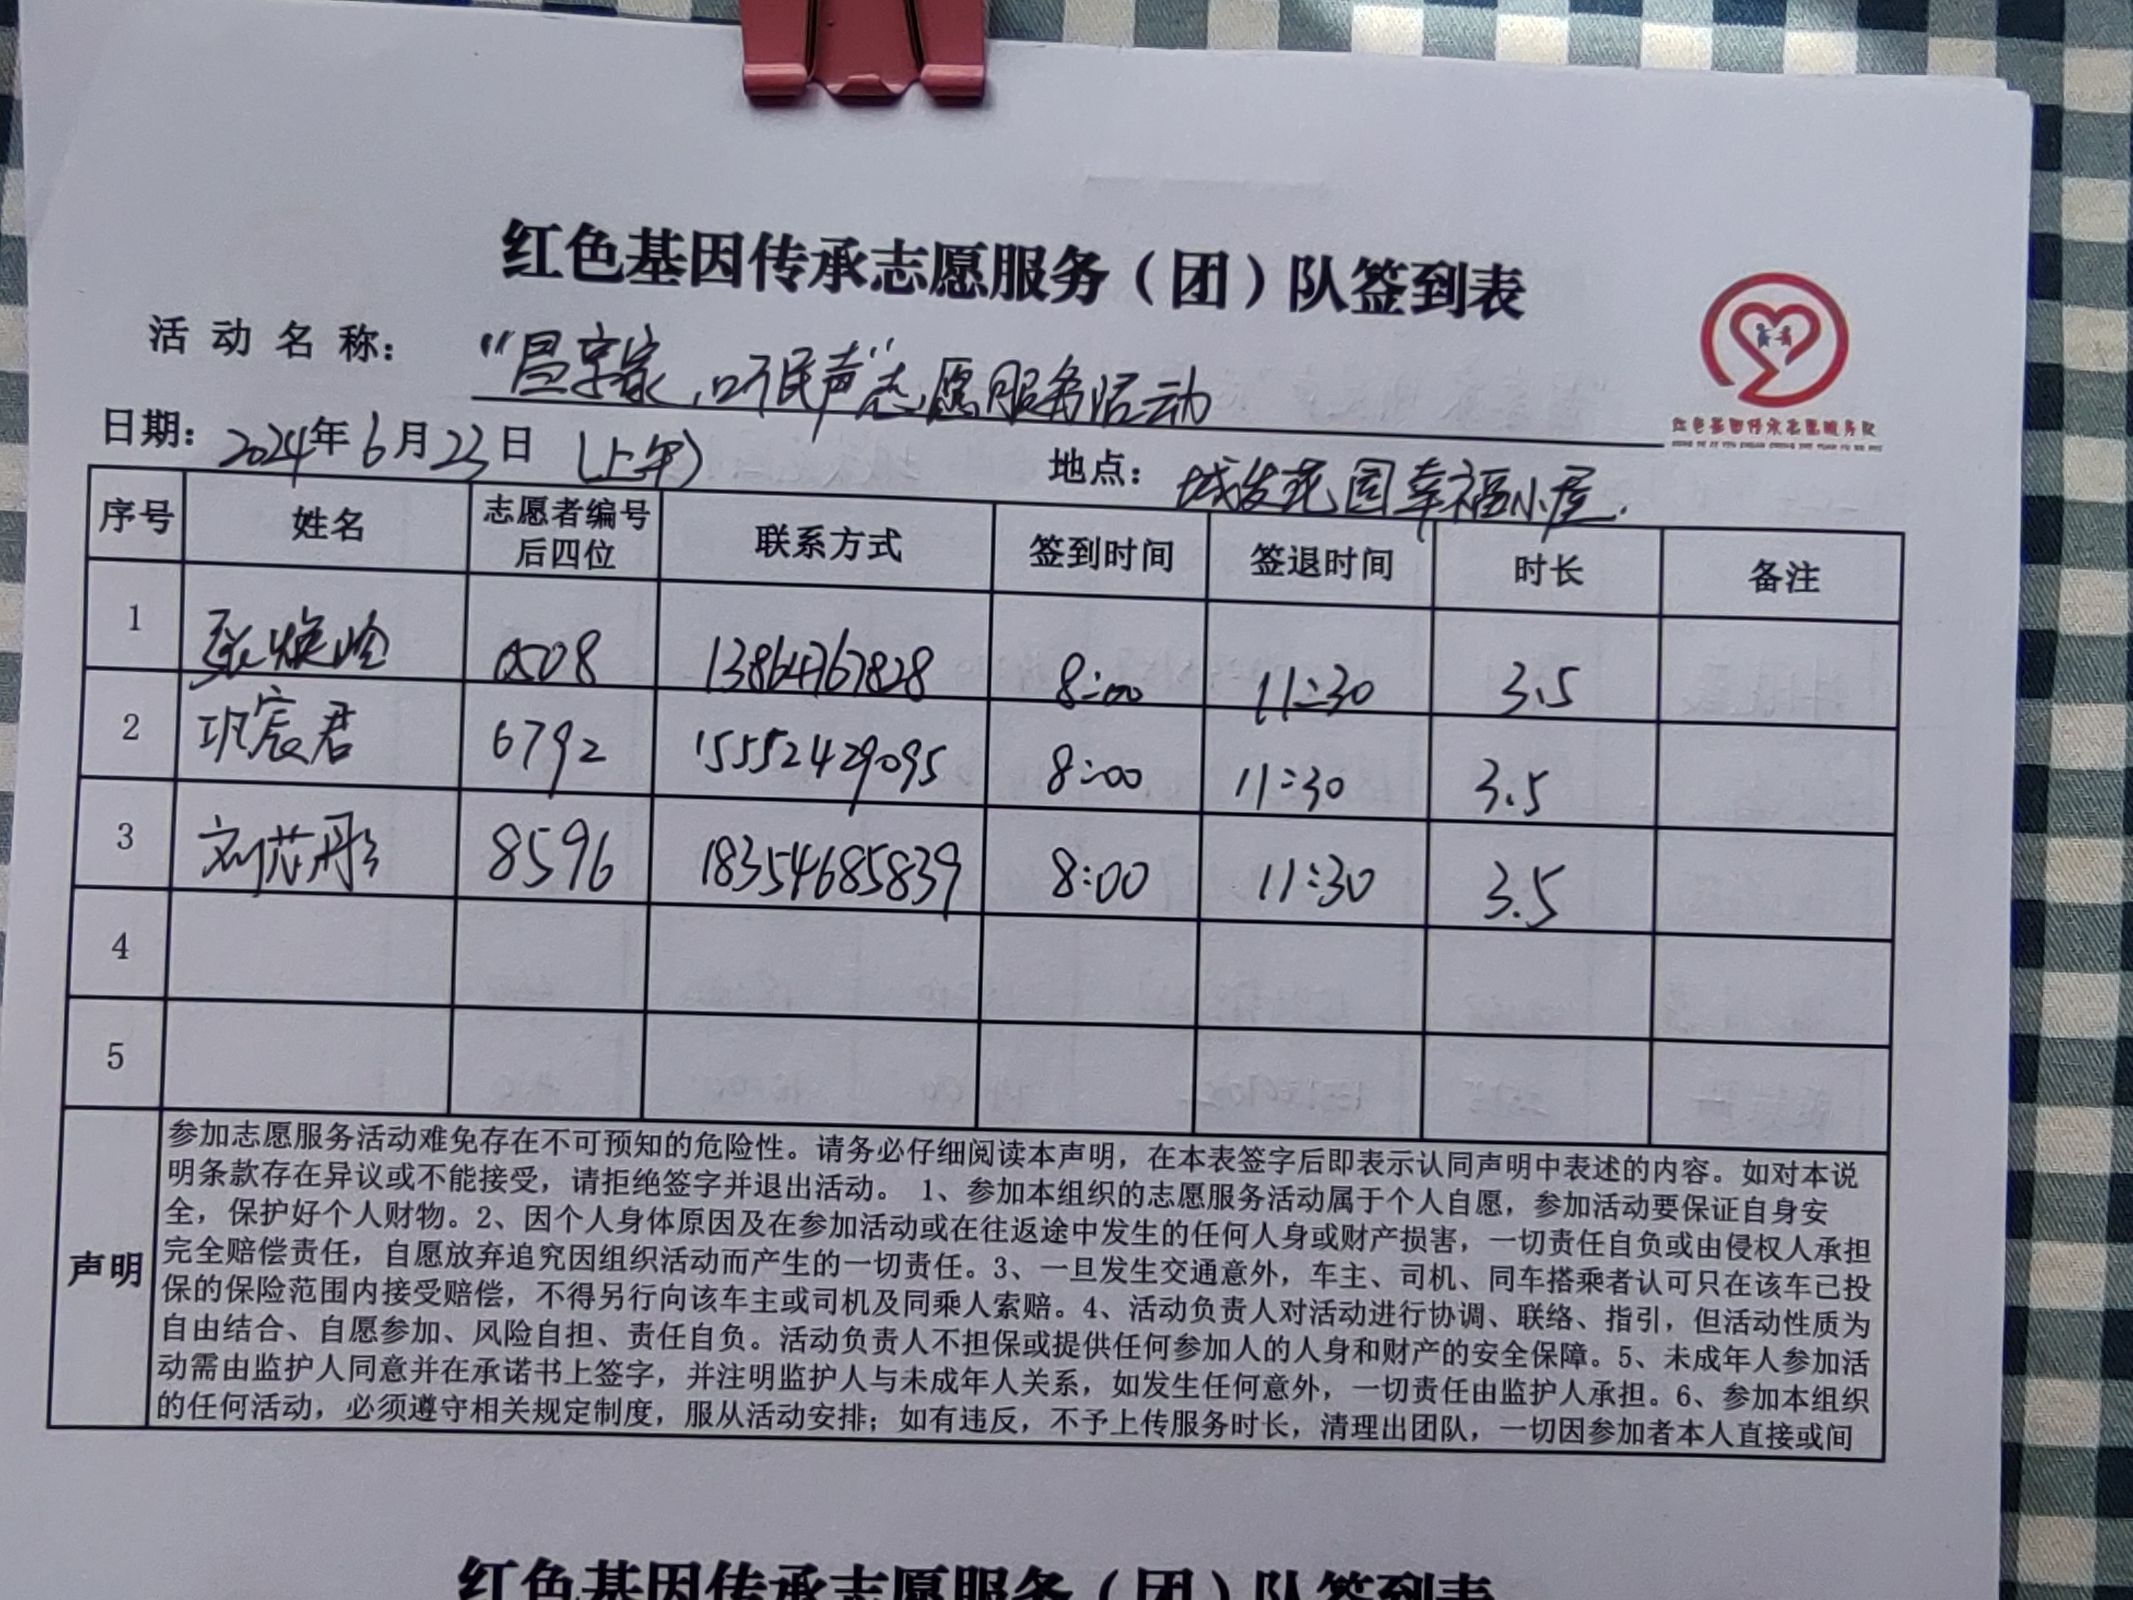 红色基因传承志愿服务（团）队签到表
活动名称： "昌字家，听民声"志愿服务活动
红色基因传承志愿服务队
日期：2024年6月23日（上午） 地点：城发花园幸福小屋.
序号 姓名 志愿者编号后四位 联系方式 签到时间 签退时间 时长 备注
1 张焕玲 0508 13864767828 8:00 11:30 3.5
2 巩宸君 6792 15552429095 8:00 11:30 3.5
3 刘芯彤 8596 18354685839 8:00 11:30 3.5
4
5
声明
参加志愿服务活动难免存在不可预知的危险性。请务必仔细阅读本声明，在本表签字后即表示认同声明中表述的内容。如对本说
明条款存在异议或不能接受，请拒绝签字并退出活动。 1、参加本组织的志愿服务活动属于个人自愿，参加活动要保证自身安
全，保护好个人财物。2、因个人身体原因及在参加活动或在往返途中发生的任何人身或财产损害，一切责任自负或由侵权人承担
完全赔偿责任，自愿放弃追究因组织活动而产生的一切责任。3、一旦发生交通意外，车主、司机、同车搭乘者认可只在该车已投
保的保险范围内接受赔偿，不得另行向该车主或司机及同乘人索赔。4、活动负责人对活动进行协调、联络、指引，但活动性质为
自由结合、自愿参加、风险自担、责任自负。活动负责人不担保或提供任何参加人的人身和财产的安全保障。5、未成年人参加活
动需由监护人同意并在承诺书上签字，并注明监护人与未成年人关系，如发生任何意外，一切责任由监护人承担。6、参加本组织
的任何活动，必须遵守相关规定制度，服从活动安排；如有违反，不予上传服务时长，清理出团队，一切因参加者本人直接或间
红色基因传承志愿服务（团）队签到表